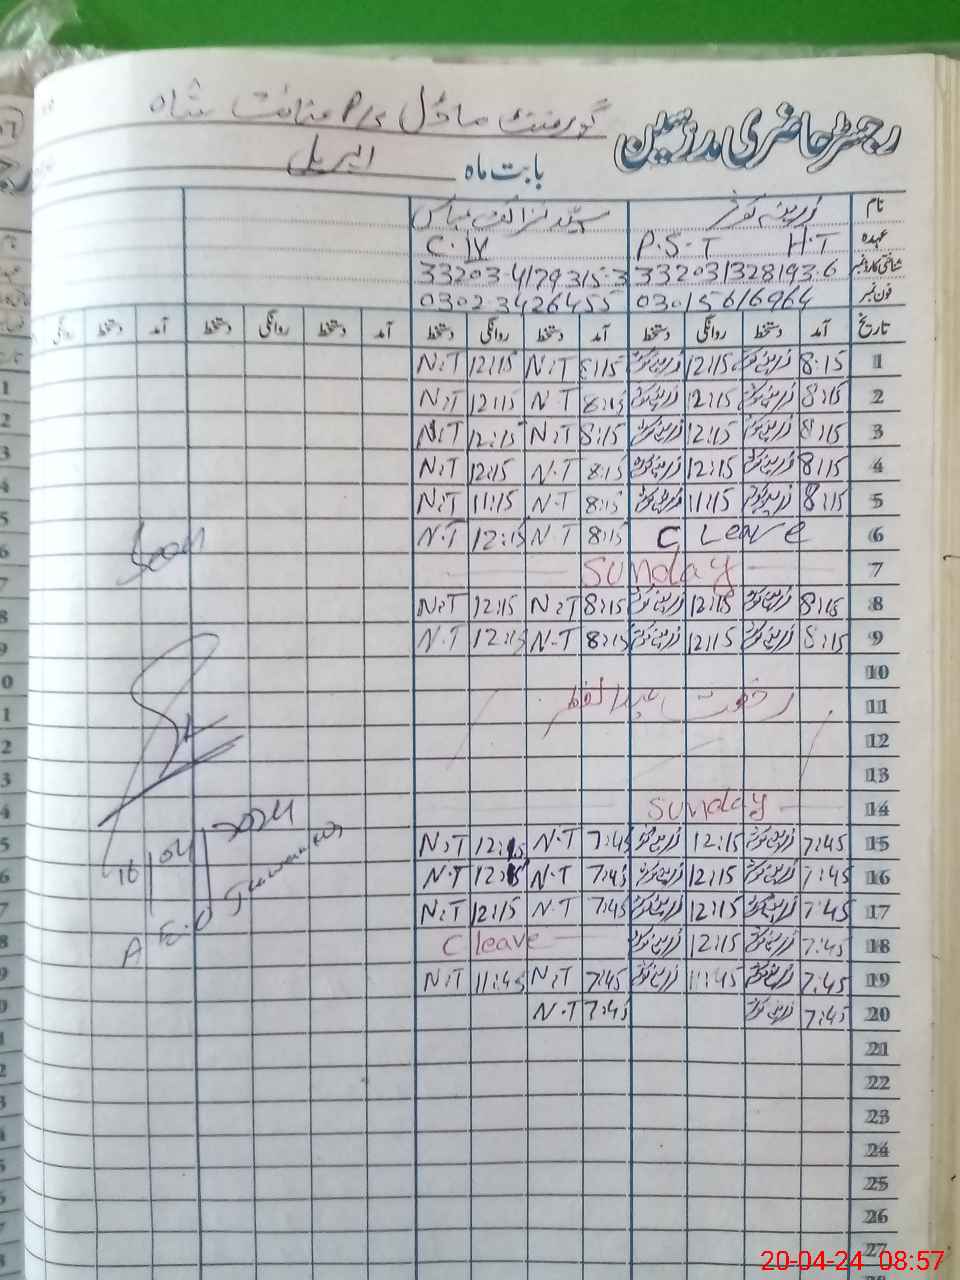 رجسٹر حاضری مدرسین گورنمنٹ ماڈل P/S عنائت شاہ
بابت ماہ اپریل
نام زرینہ کوثر سید نزاکت عباس
عہدہ P.S.T H.T C.IV
شناختی کارڈ نمبر 33203132819 3.6 33203-4179315-3
فون نمبر 03015616964 0302-3426455
تاریخ آمد دستخط روانگی دستخط آمد دستخط روانگی دستخط آمد دستخط روانگی دستخط آمد دستخط روانگی
1 8:15 زرینہ کوثر 12:15 زرینہ کوثر 8:15 N.T 12:15 N.T
2 8:15 زرینہ کوثر 12:15 زرینہ کوثر 8:15 N.T 12:15 N.T
3 8:15 زرینہ کوثر 12:15 زرینہ کوثر 8:15 N.T 12:15 N.T
4 8:15 زرینہ کوثر 12:15 زرینہ کوثر 8:15 N.T 12:15 N.T
5 8:15 زرینہ کوثر 11:15 زرینہ کوثر 8:15 N.T 11:15 N.T
6 C Leave 8:15 N.T 12:15 N.T
Seen
7 Sunday
8 8:15 زرینہ کوثر 12:15 زرینہ کوثر 8:15 N.T 12:15 N.T
9 8:15 زرینہ کوثر 12:15 زرینہ کوثر 8:15 N.T 12:15 N.T
10
11 رخصت عید الفطر
12
13
14 Sunday
15 7:45 زرینہ کوثر 12:15 زرینہ کوثر 7:45 N.T 12:15 N.T
16 7:45 زرینہ کوثر 12:15 زرینہ کوثر 7:45 N.T 12:15 N.T
16/04/2024
17 7:45 زرینہ کوثر 12:15 زرینہ کوثر 7:45 N.T 12:15 N.T
A.E.O
18 7:45 زرینہ کوثر 12:15 زرینہ کوثر C leave
19 7:45 زرینہ کوثر 11:45 زرینہ کوثر 7:45 N.T 11:45 N.T
20 7:45 زرینہ کوثر 7:45 N.T
21
22
23
24
25
26
27
20-04-24 08:57